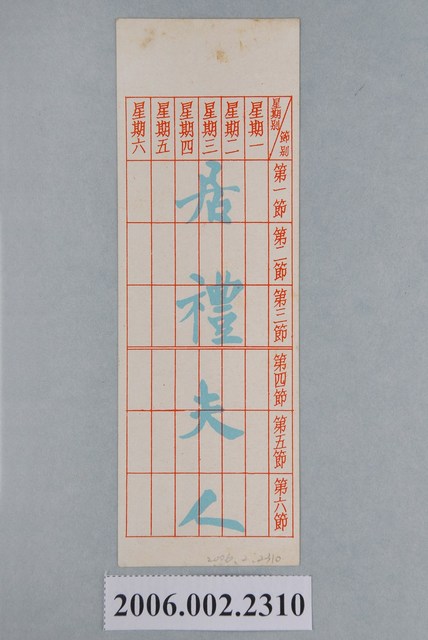 星期別
節別
星期一
星期二
星期三
星期四
星期五
星期六
第一節
第二節
第三節
第四節
第五節
第六節
居禮夫人
2006.2.2310
2006.002.2310